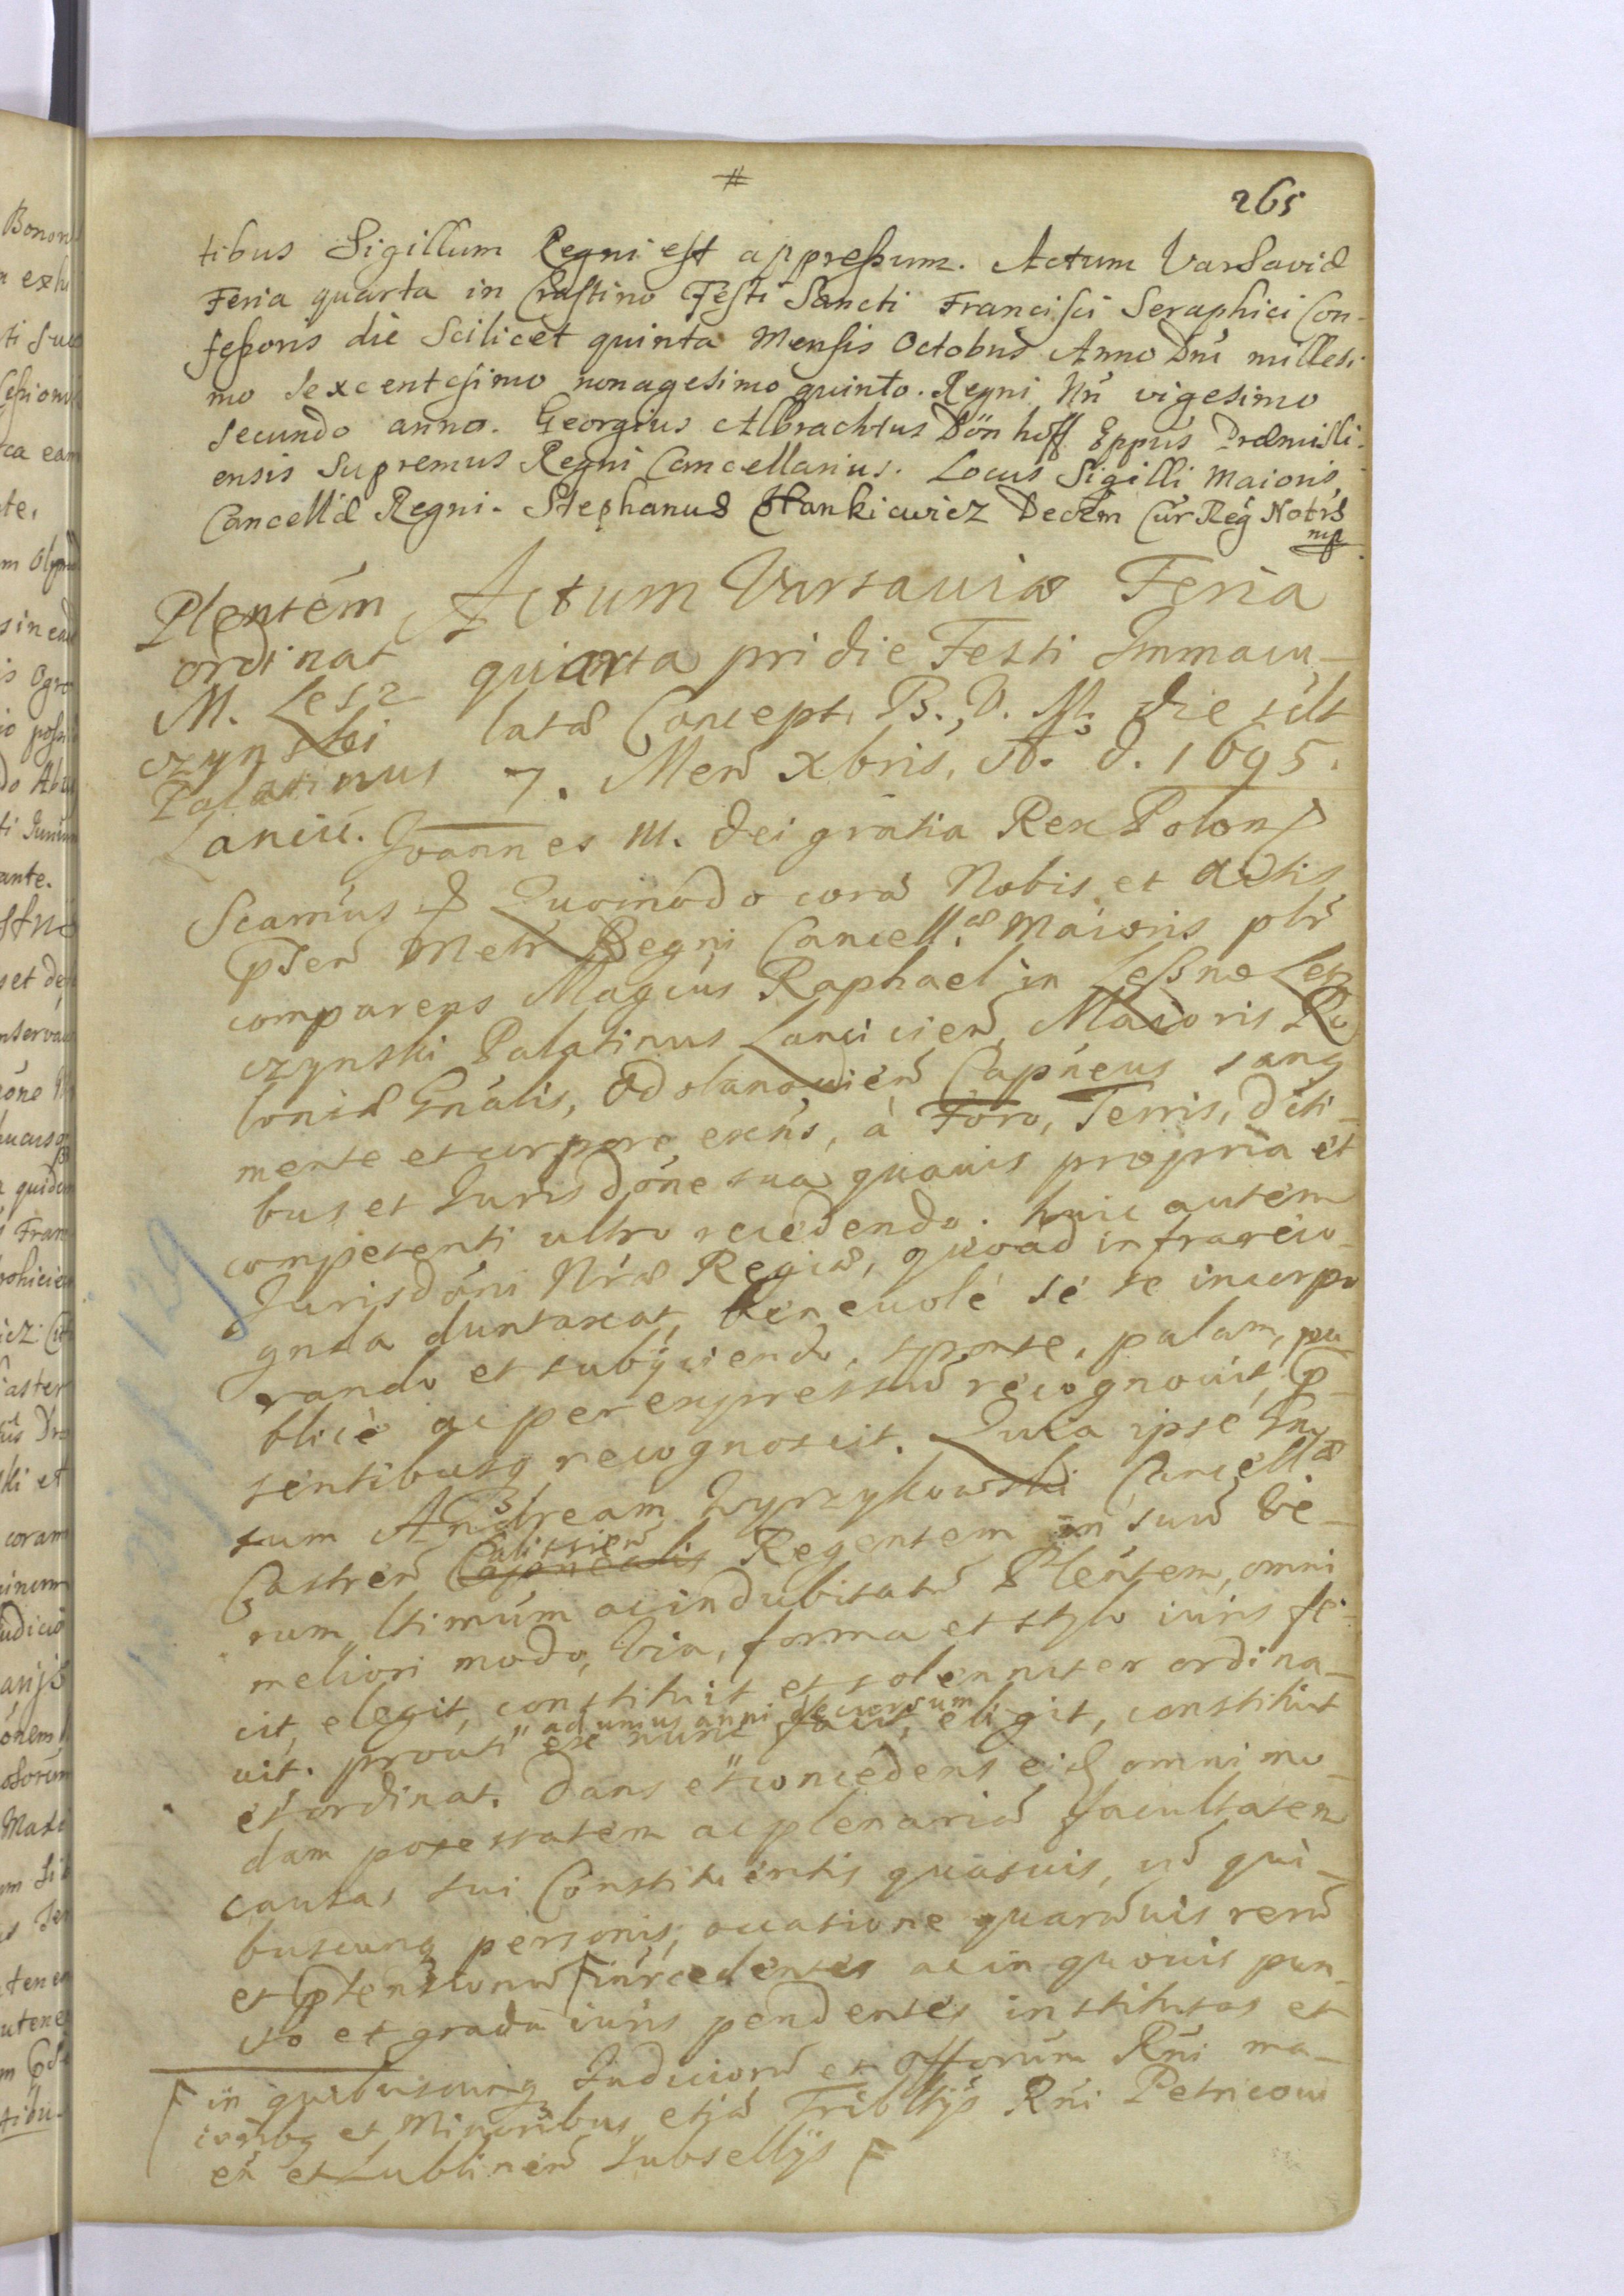 #
265
tibus Sigillum Regni est appressum. Actum Varsaviæ
Feria quarta in Crastino Festi Sancti Francisci Seraphici Con-
fessoris die Scilicet quinta Mensis Octobris Anno Dni millesi-
mo Sexcentesimo nonagesimo quinto. Regni Nri vigesimo
Secundo anno. Georgius Albrachtus Dönhoff Eppus Præmisli-
ensis Supremus Regni Cancellarius. Locus Sigilli Maioris
Cancellæ Regni. Stephanus Hankiewicz Decem Cur Reg Notrs
mp
Plentem
ordinat
M. Lesz
czynski
Palatinus
Lancic.
Actum Varsaviæ Feria
quarta pridie Festi Immacu-
latæ Concept. B. V. M. die scilt
7. Men Xbris, A. d. 1695.
Joannes III. Dei gratia Rex Polon
Scamus Quomodo cora Nobis et actis
pnten Metr Regni Cancellæ Maioris plr
comparens Magcus Raphael in Leszno Lesz
czynski Palatinus Lancicien, Maioris Po
loniæ Gnalis, Odolanowien Capneus sang
mente et corpore exens, à Foro, Terris, Diti-
bus et Jurisdone sua quauis propria et
competenti ultro recedendo. huic autem
Jurisdoni Nræ Regiæ, quoad infrareco-
gnta duntaxat, beneuole sé se incorpo
rando et subijciendo, sponte, palam, pu
blice ac per expressum recognouit, p-
sentibusq recognoscit. Quia ipse Gno
sum Andream Zyrzykowski Cancellæ
Castren Calissien Regentem in suum Ve-
rum ltimum ac indubitatum Plentem, omni
meliori modo, via, forma et stylo iuris fe-
cit, elegit, constituit et solenniter ordina-
uit. prouti ad unius anni decursum
ex nunc facit, eligit, constituit
et ordinat. Dans et concedens eid omnimo-
dam potestatem ac plenariam facultatem
causas sui Constituentis quasuis, cum qui-
buscunq personis, occasione quarumuis rerum
et ptensionum F intercedentes ac in quouis pun-
cto et gradu iuris pendentes institutas et
F in quibuscunq Judiciorum et offorum Rni ma-
ioribq et Minoribus etia Tribltijs Rni Petricoui
en et Lublinen Subsellijs F